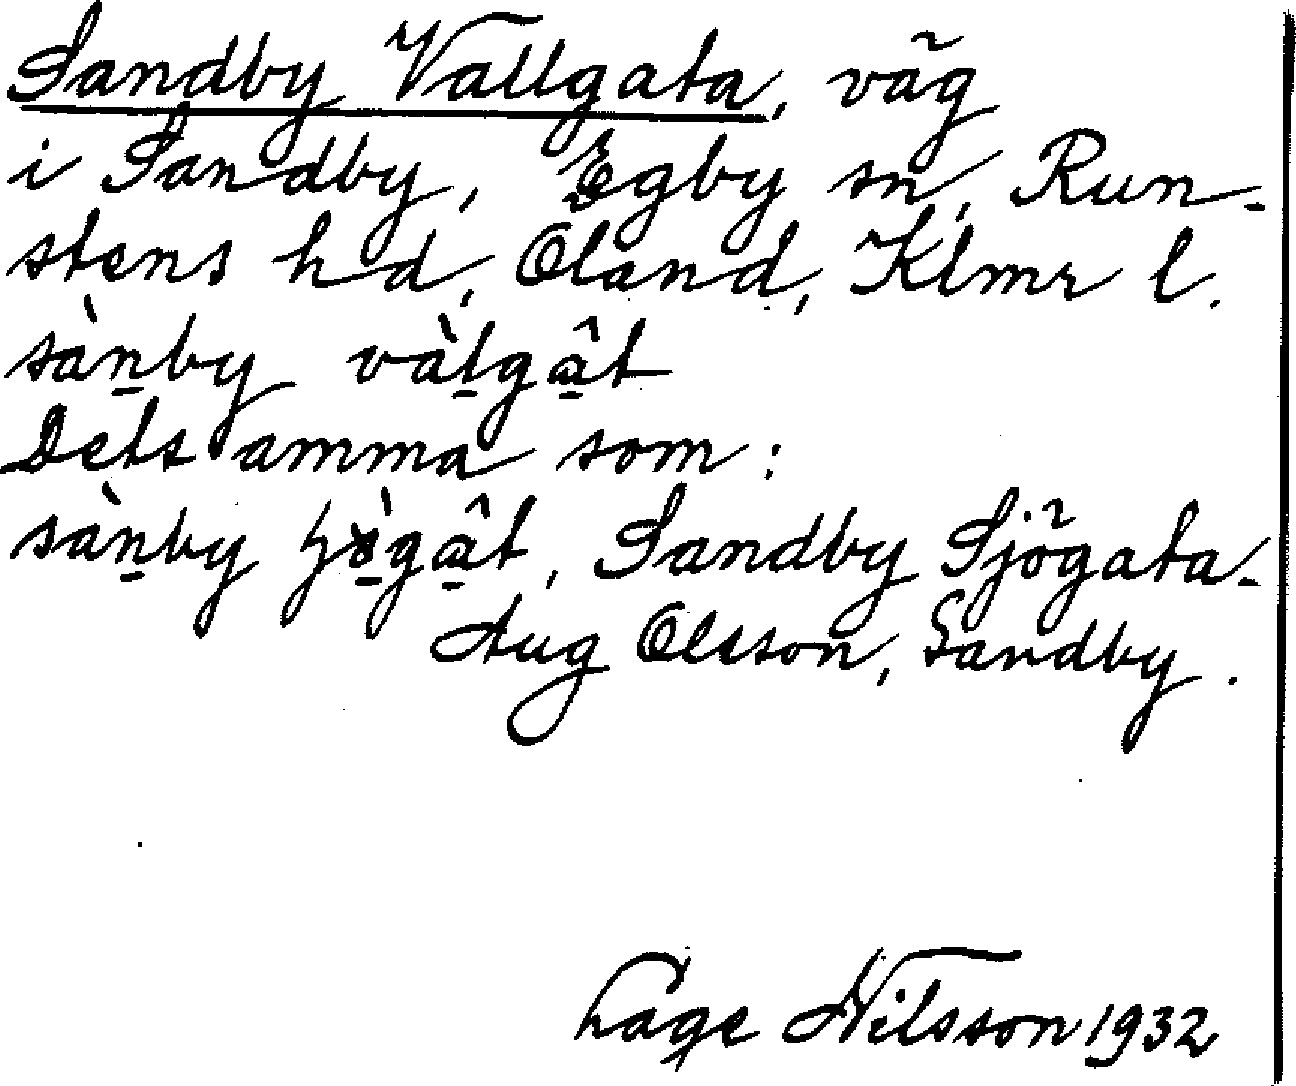 Sandby Vallgata, väg
i Sandby, Egby sn, Run-
stens hd, Öland, Klmr l.
sàn̠by vàl̠gâ̠t
Dets amma som:
sàn̠by gâ̠t, Sandby Sjögata.
Aug Olsson, Sandby.
Lage Nilsson 1932